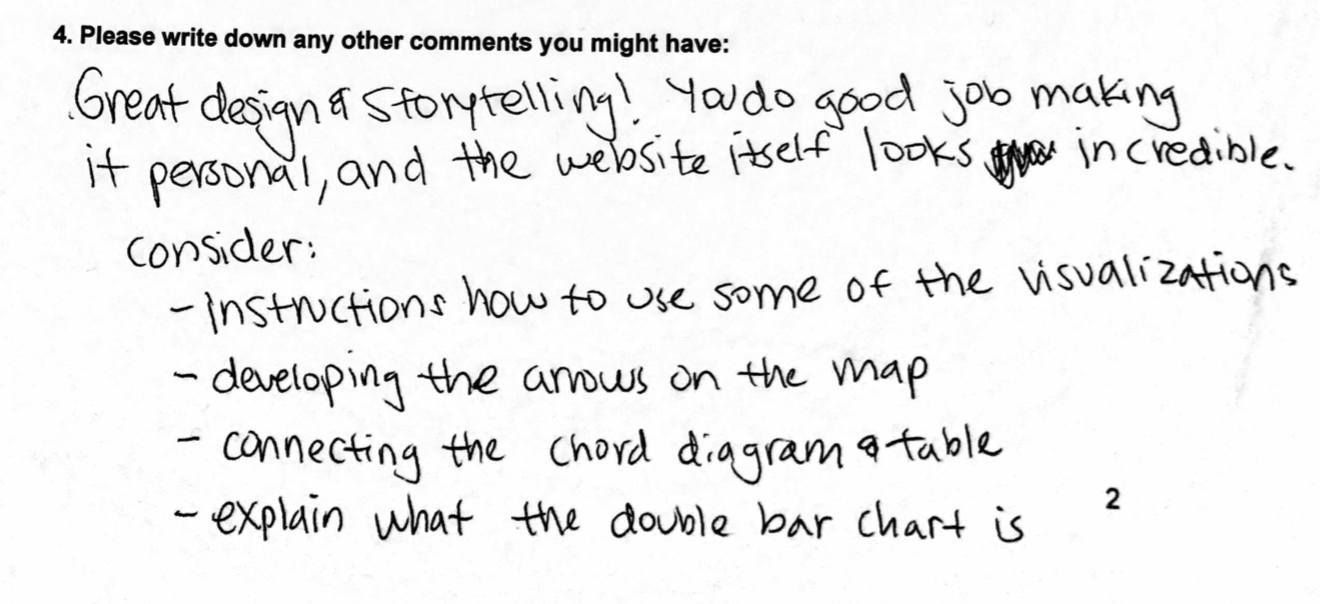 4. Please write down any other comments you might have:
Great design & storytelling! You do good job making
it personal, and the website itself looks incredible.
Consider:
- instructions how to use some of the visualizations
- developing the arrows on the map
- connecting the chord diagram & table
- explain what the double bar chart is
2